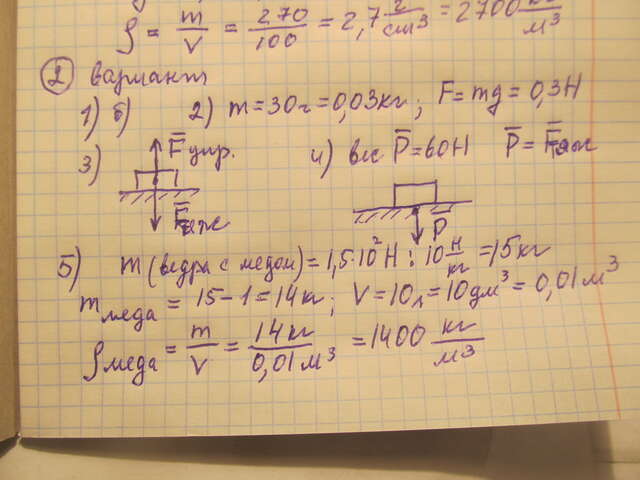 ρ = m/V = 270/100 = 2,7 г/см³ = 2700 кг/м³
② вариант
1) б) 2) m = 30г = 0,03кг; F = mg = 0,3Н
3) F̄упр. 4) вес P̄ = 60Н P̄ = F̄тяж
F̄тяж P̄
5) m (ведра с медом) = 1,5·10²Н : 10 Н/кг = 15кг
mмеда = 15-1 = 14кг; V = 10л = 10дм³ = 0,01м³
ρмеда = m/V = 14кг/0,01м³ = 1400 кг/м³